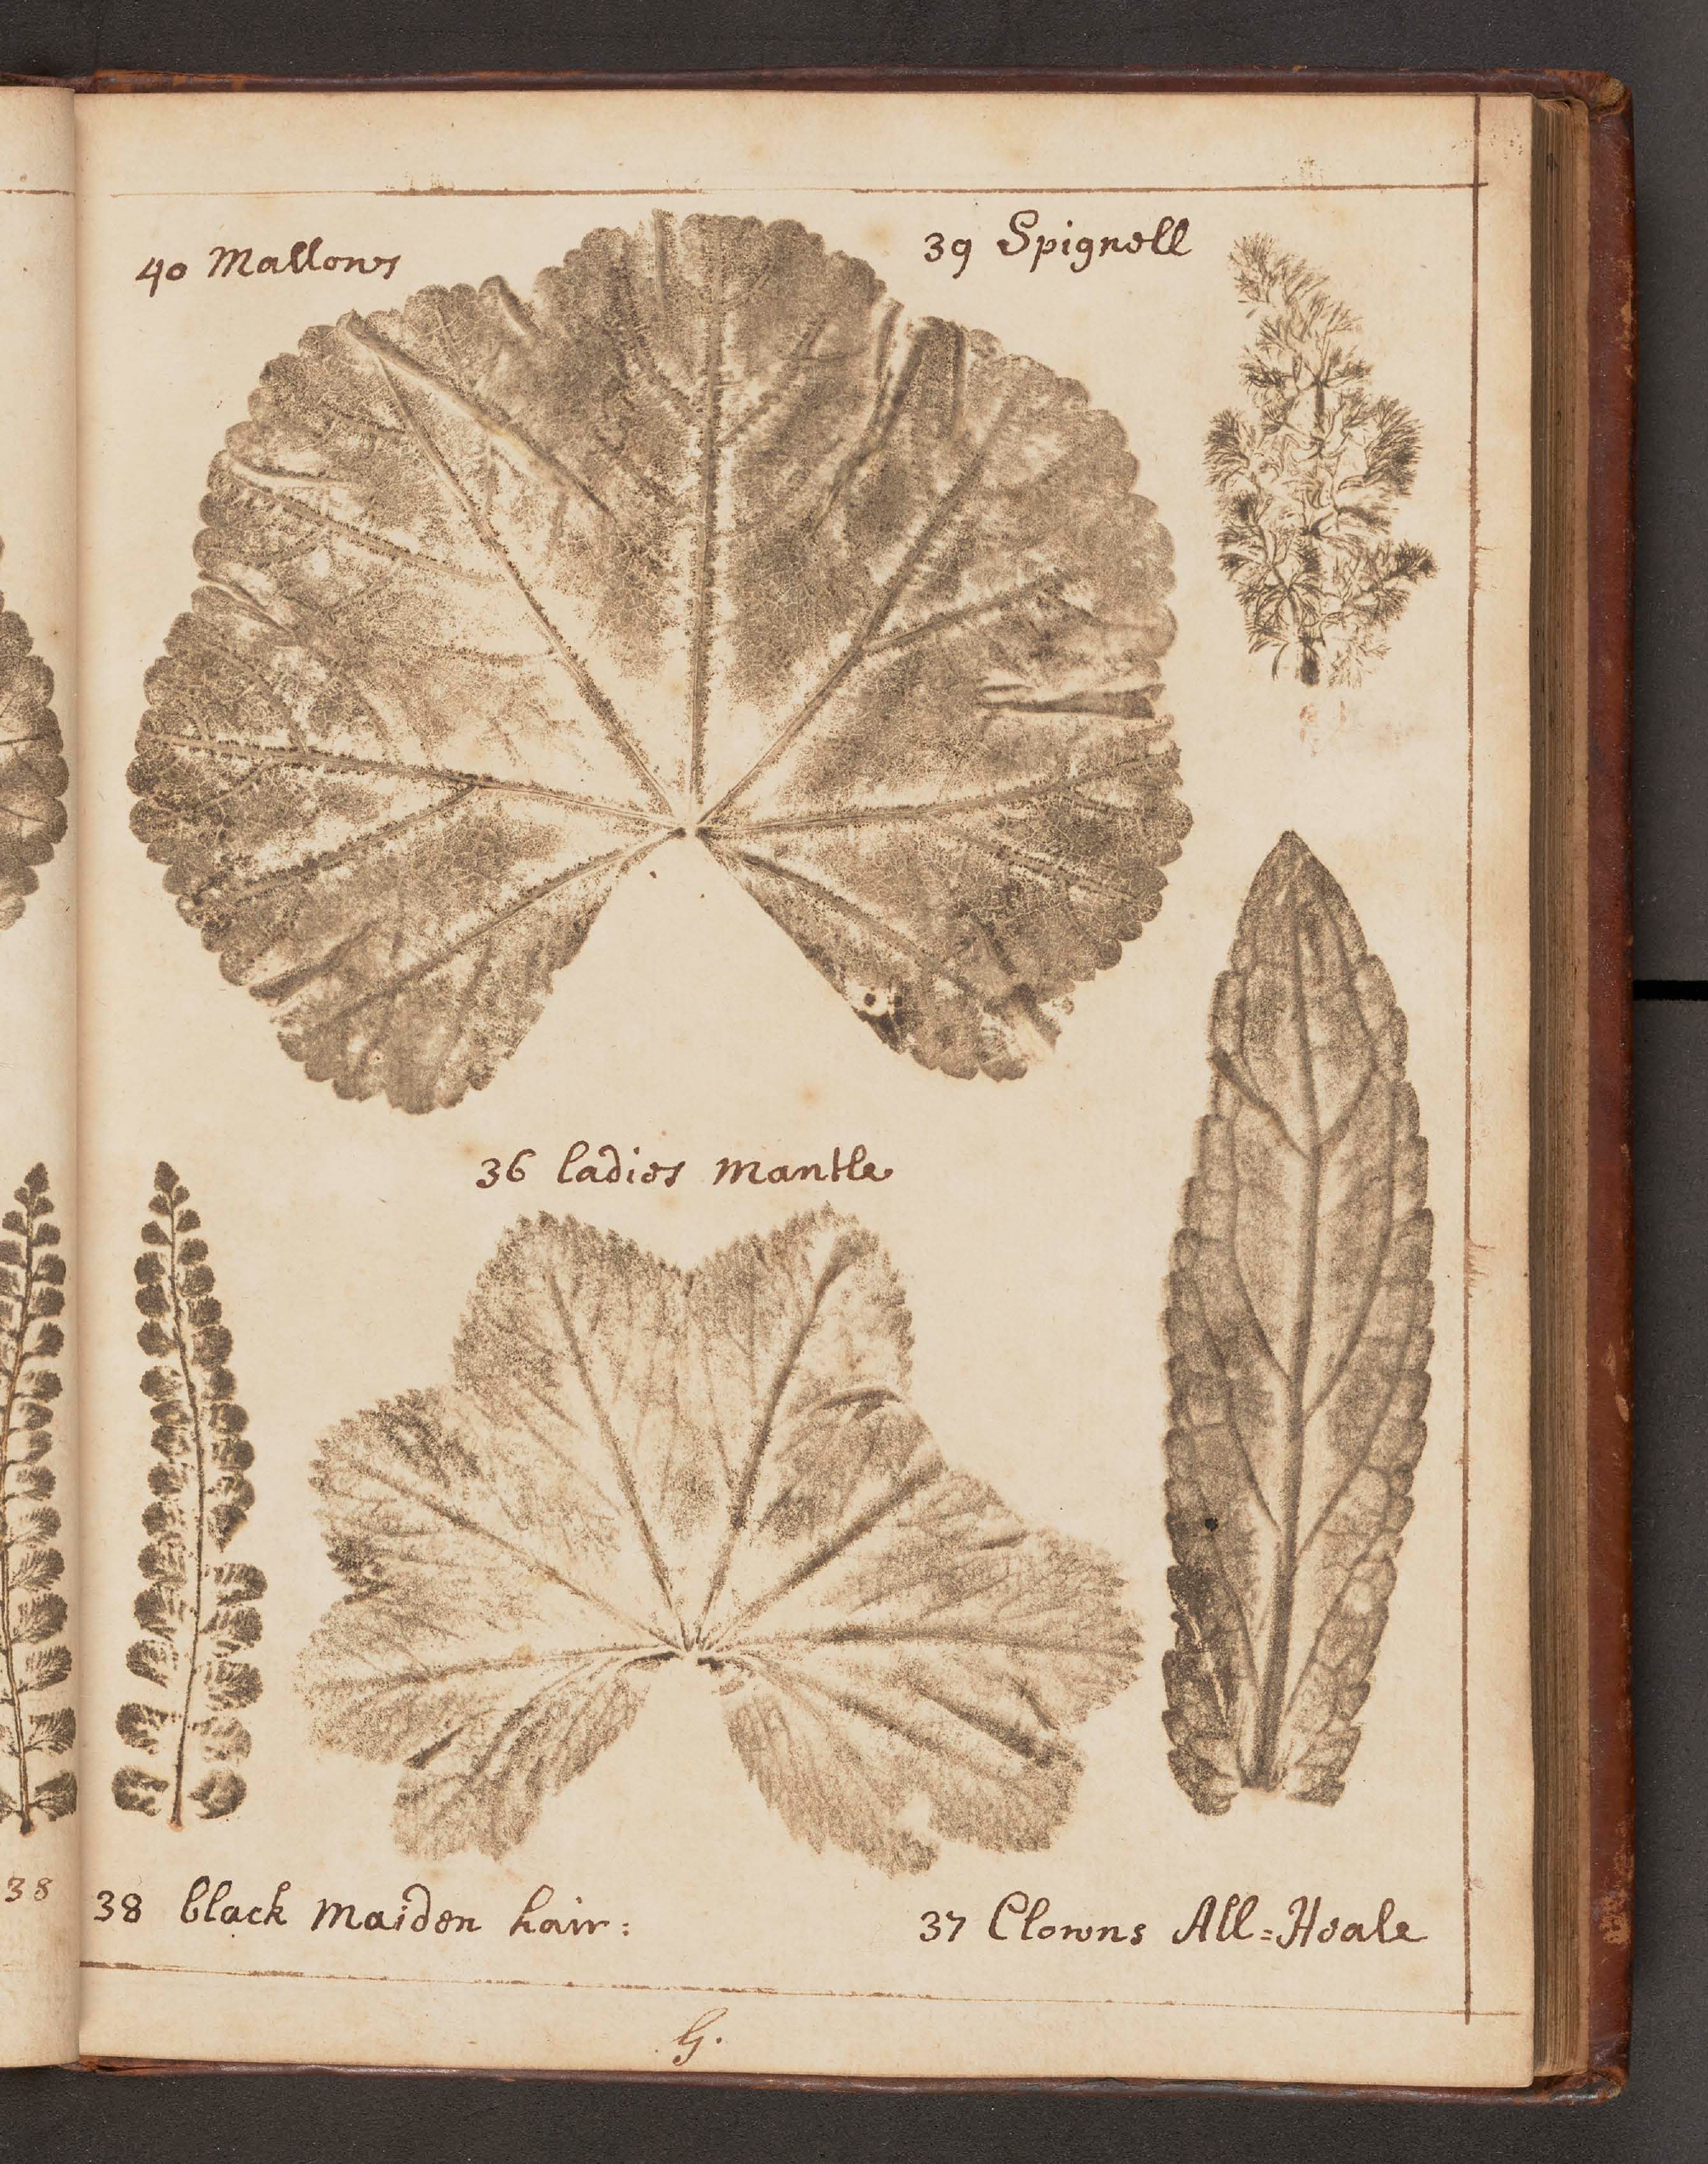 40 Mallows
39 Spignell
36 ladies mantle
38
38 black maiden hair:
37 Clowns All=Heale
G.